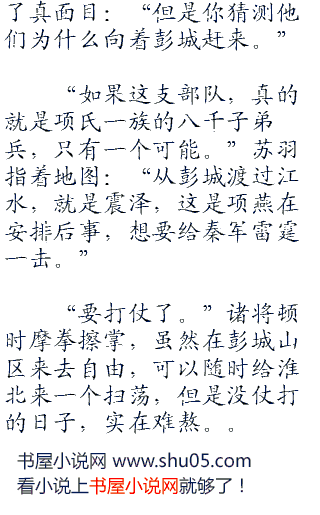 了真面目：“但是你猜测他
们为什么向着彭城赶来。”
“如果这支部队，真的
就是项氏一族的八千子弟
兵，只有一个可能。”苏羽
指着地图：“从彭城渡过江
水，就是震泽，这是项燕在
安排后事，想要给秦军雷霆
一击。”
“要打仗了。”诸将顿
时摩拳擦掌，虽然在彭城山
区来去自由，可以随时给淮
北来一个扫荡，但是没仗打
的日子，实在难熬。。
书屋小说网 www.shu05.com
看小说上书屋小说网就够了！